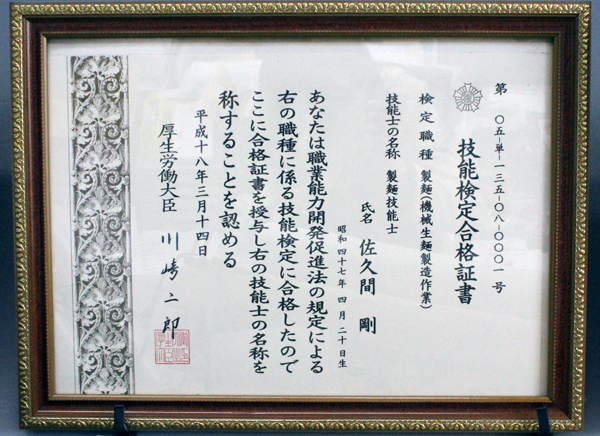 第 〇五-単-一三五-〇八-〇〇〇一 号
技能検定合格証書
検定職種 製麺(機械生麺製造作業)
技能士の名称 製麺技能士
氏名 佐久間 剛
昭和四十七年 四月 二十日生
あなたは職業能力開発促進法の規定による
右の職種に係る技能検定に合格したので
ここに合格証書を授与し右の技能士の名称を
称することを認める
平成十八年三月十四日
厚生労働大臣 川崎二郎